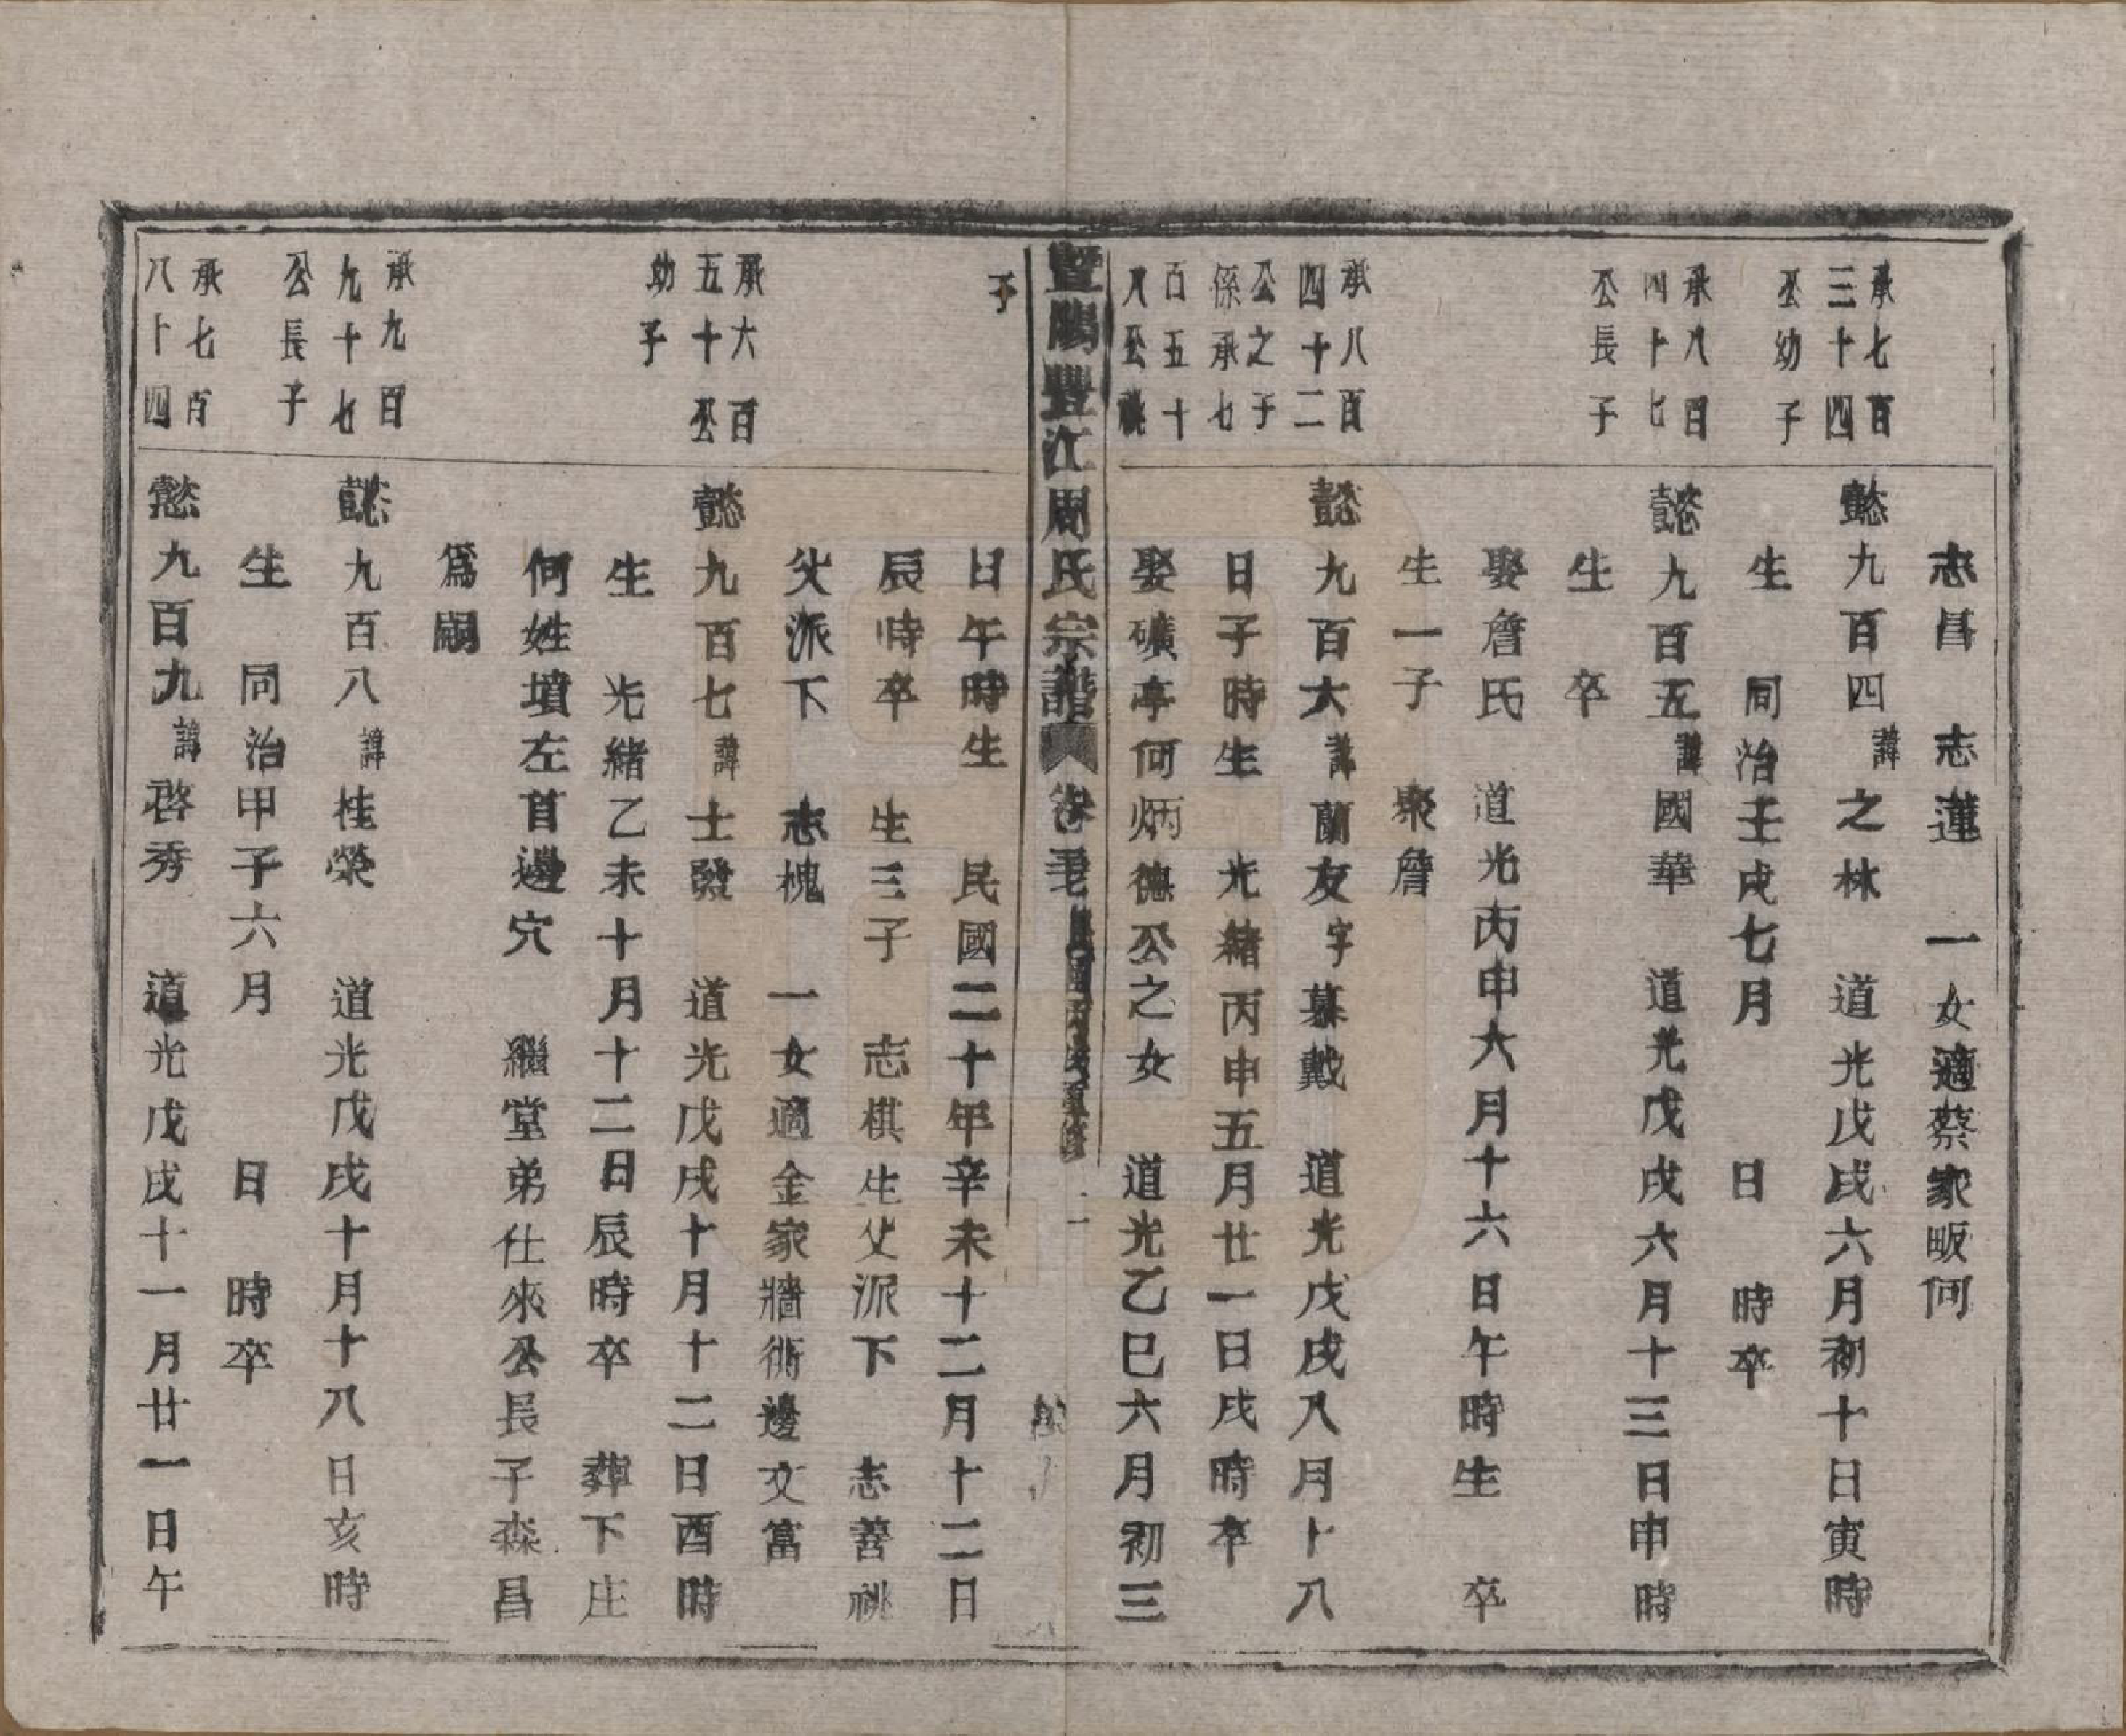 志昌　志蓮　一女適蔡家畈何
承七百
三十四
公幼子
懿九百四諱之林　道光戊戌六月初十日寅時
生　同治壬戌七月　日　時卒
承八百
四十七
公長子
懿九百五諱國華　道光戊戌六月十三日申時
生　卒
娶詹氏　道光丙申六月十六日午時生　卒
生一子　聚詹
承八百
四十二
公之子
係承七
百五十
八公祧
懿九百六諱蘭友字慕戴　道光戊戌八月十八
日子時生　光緒丙申五月廿一日戌時卒
娶礦亭何炳德公之女　道光乙巳六月初三
暨陽豐江周氏宗譜　卷　民國　重修
子
日午時生　民國二十年辛未十二月十二日
辰時卒　生三子　志棋生父派下　志善祧
父派下　志槐　一女適金家牆衖邊文富
承六百
五十公
幼子
懿九百七諱士發　道光戊戌十月十二日酉時
生　光緒乙未十月十二日辰時卒　葬下庄
何姓墳左首邊穴　繼堂弟仕來公長子森昌
爲嗣
承九百
九十七
公長子
懿九百八諱桂榮　道光戊戌十月十八日亥時
生　同治甲子六月　日　時卒
承七百
八十四
懿九百九諱啓秀　道光戊戌十一月廿一日午